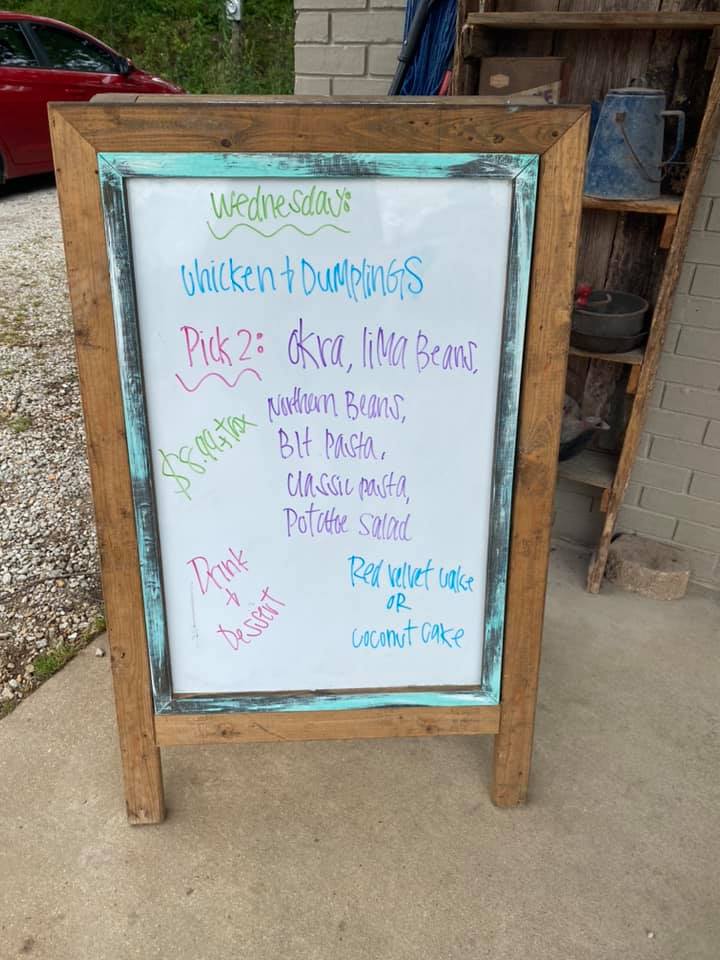 Wednesday:
Chicken & Dumplings
Pick 2: Okra, lima Beans,
Northern Beans,
$8.99+tax
Blt Pasta,
Classic pasta,
Potatoe Salad
Drink
&
Dessert
Red velvet cake
OR
coconut cake